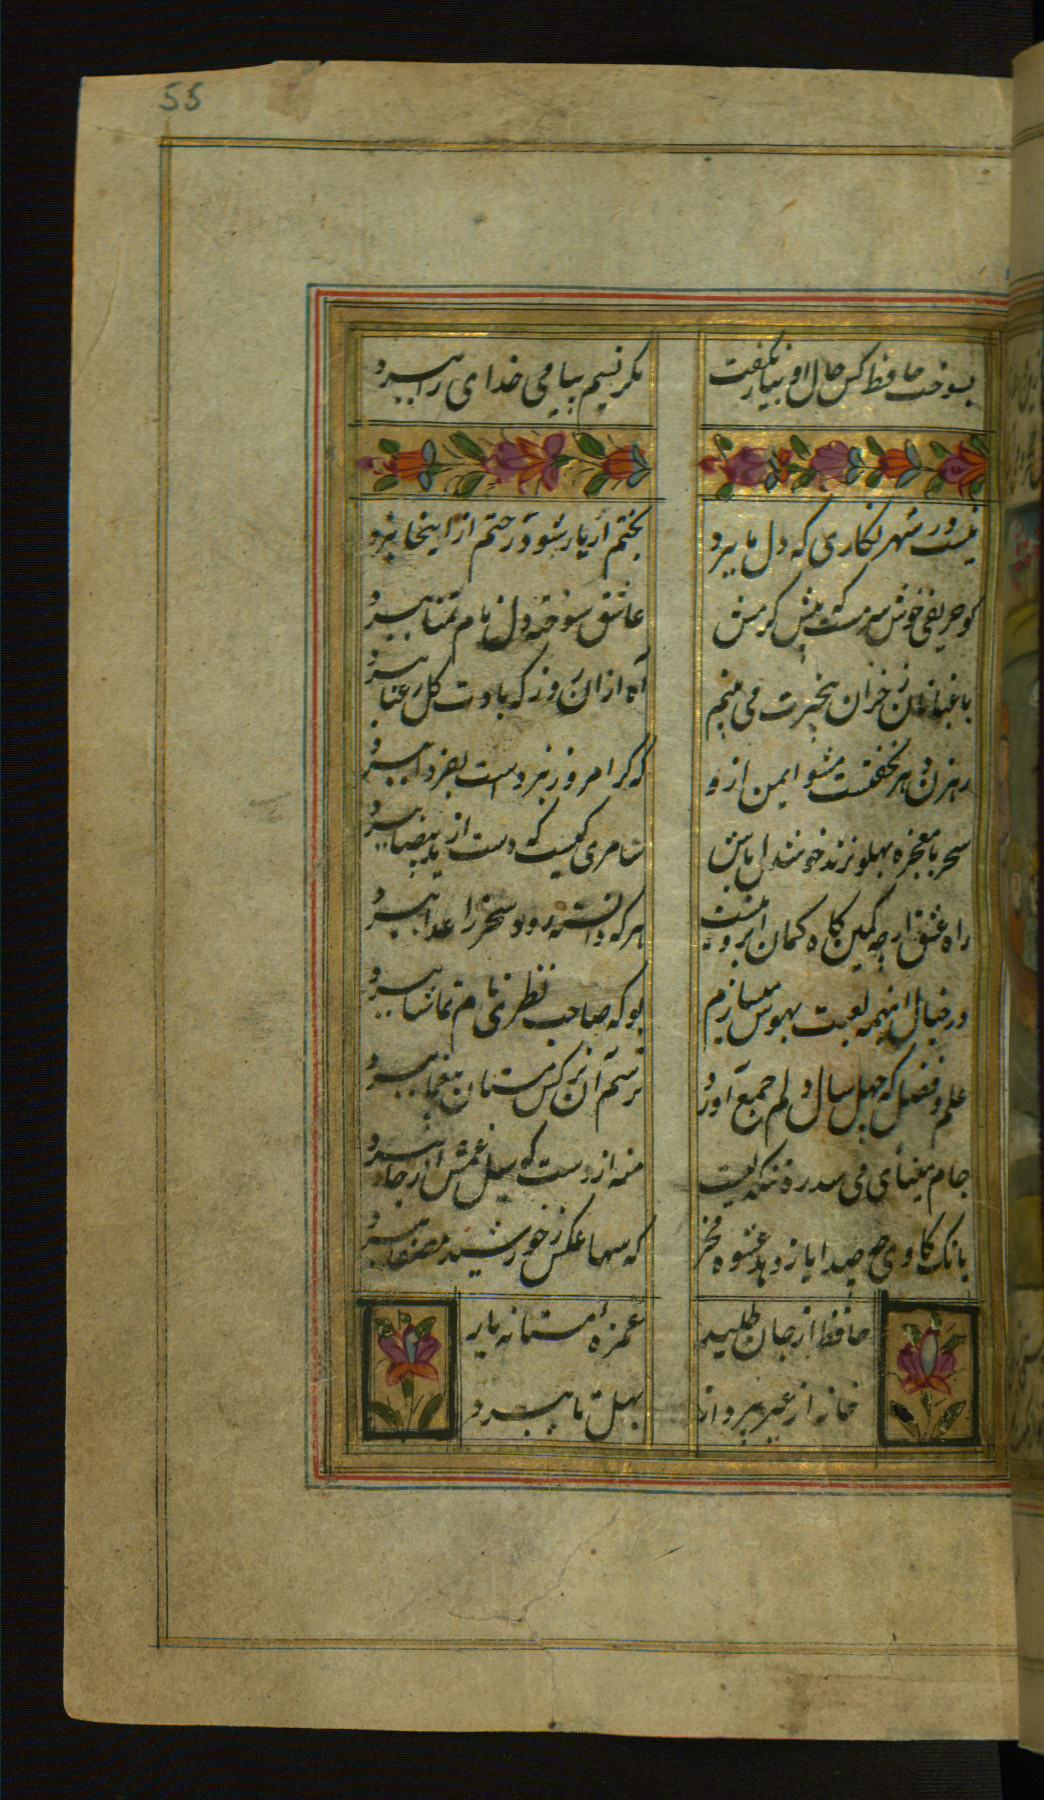 55
بسوخت حافظ کس حال او بیار نکفت مکر نسیم پیامی خدای را ببرد
نیست در شهر نکاری که دل ما ببرد بختم ار یار شود رختم از اینجا ببرد
کو حریفی خوش سرمست که پیش کرمش عاشق سوخته دل نام تمنا ببرد
باغبانا ز خزان بیخبرت می بینم آه از ان روز که بادت کل رعنا ببرد
رهزن دهر نخفتست مشو ایمن ازو که کر امروز نبردست بفردا ببرد
سحر با معجزه پهلو نزند خوشدل باش سامری کیست که دست از ید بیضا ببرد
راه عشق ار چه کمین کاه کمان ابرونست هرکه دانسته رود سخر ز اعدا ببرد
در خیال اینهمه لعبت بهوس میبازم بو که صاحب نظری نام تماشا ببرد
علم و فضلی که چهل سال دلم جمع آورد ترسم آن نرکس مستان بیغما ببرد
جام مینائی می سد ره تنکدلیست منه از دست که سیل غمش از جا ببرد
بانک کاوی چه صدا باز دهد عشوه مخر که سها عکس ز خورشید مصفا ببرد
حافظ ار جان طلبد غمزه مستانه یار
خانه از غیر بپرداز بهل تا ببرد